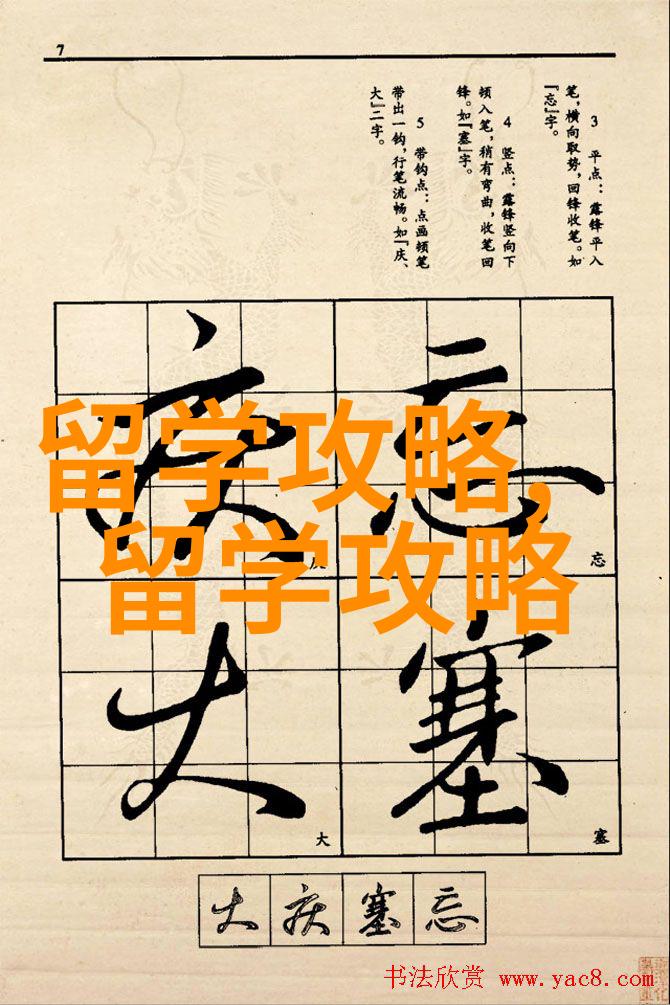 7
3 平点：露锋平入
笔，横向取势，回锋收笔。如
『忘』字。
4 竖点：露锋竖向下
顿入笔，稍有弯曲，收笔回
锋。如『塞』字。
5 带钩点：点画顿笔
带出一钩，行笔流畅。如『庆、
大』二字。
留学攻略,
留学攻略
忘
忘
塞
塞
庆
大
大
大 庆 塞 忘
书法欣赏 www.yac8.com